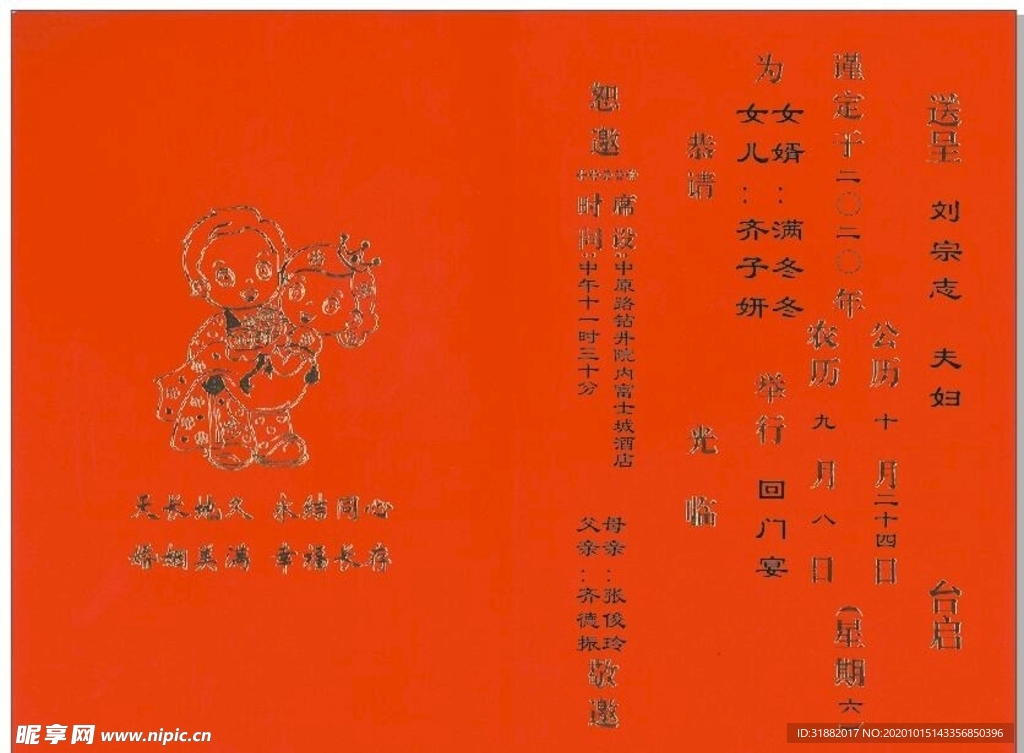 送呈 刘宗志 夫妇 台启
谨定于二〇二〇年
公历 十 月二十四日
农历 九 月 八 日
(星期 六
为
女婿:满冬冬
女儿:齐子妍
举行 回门宴
恭请 光临
席设:中原路钻井院内富士城酒店
时间:中午十一时三十分
恕邀
母亲:张俊玲
父亲:齐德振
敬邀
天长地久 永结同心
婚姻美满 幸福长存
昵享网 www.nipic.cn
ID:31882017 NO:20201015143356850396